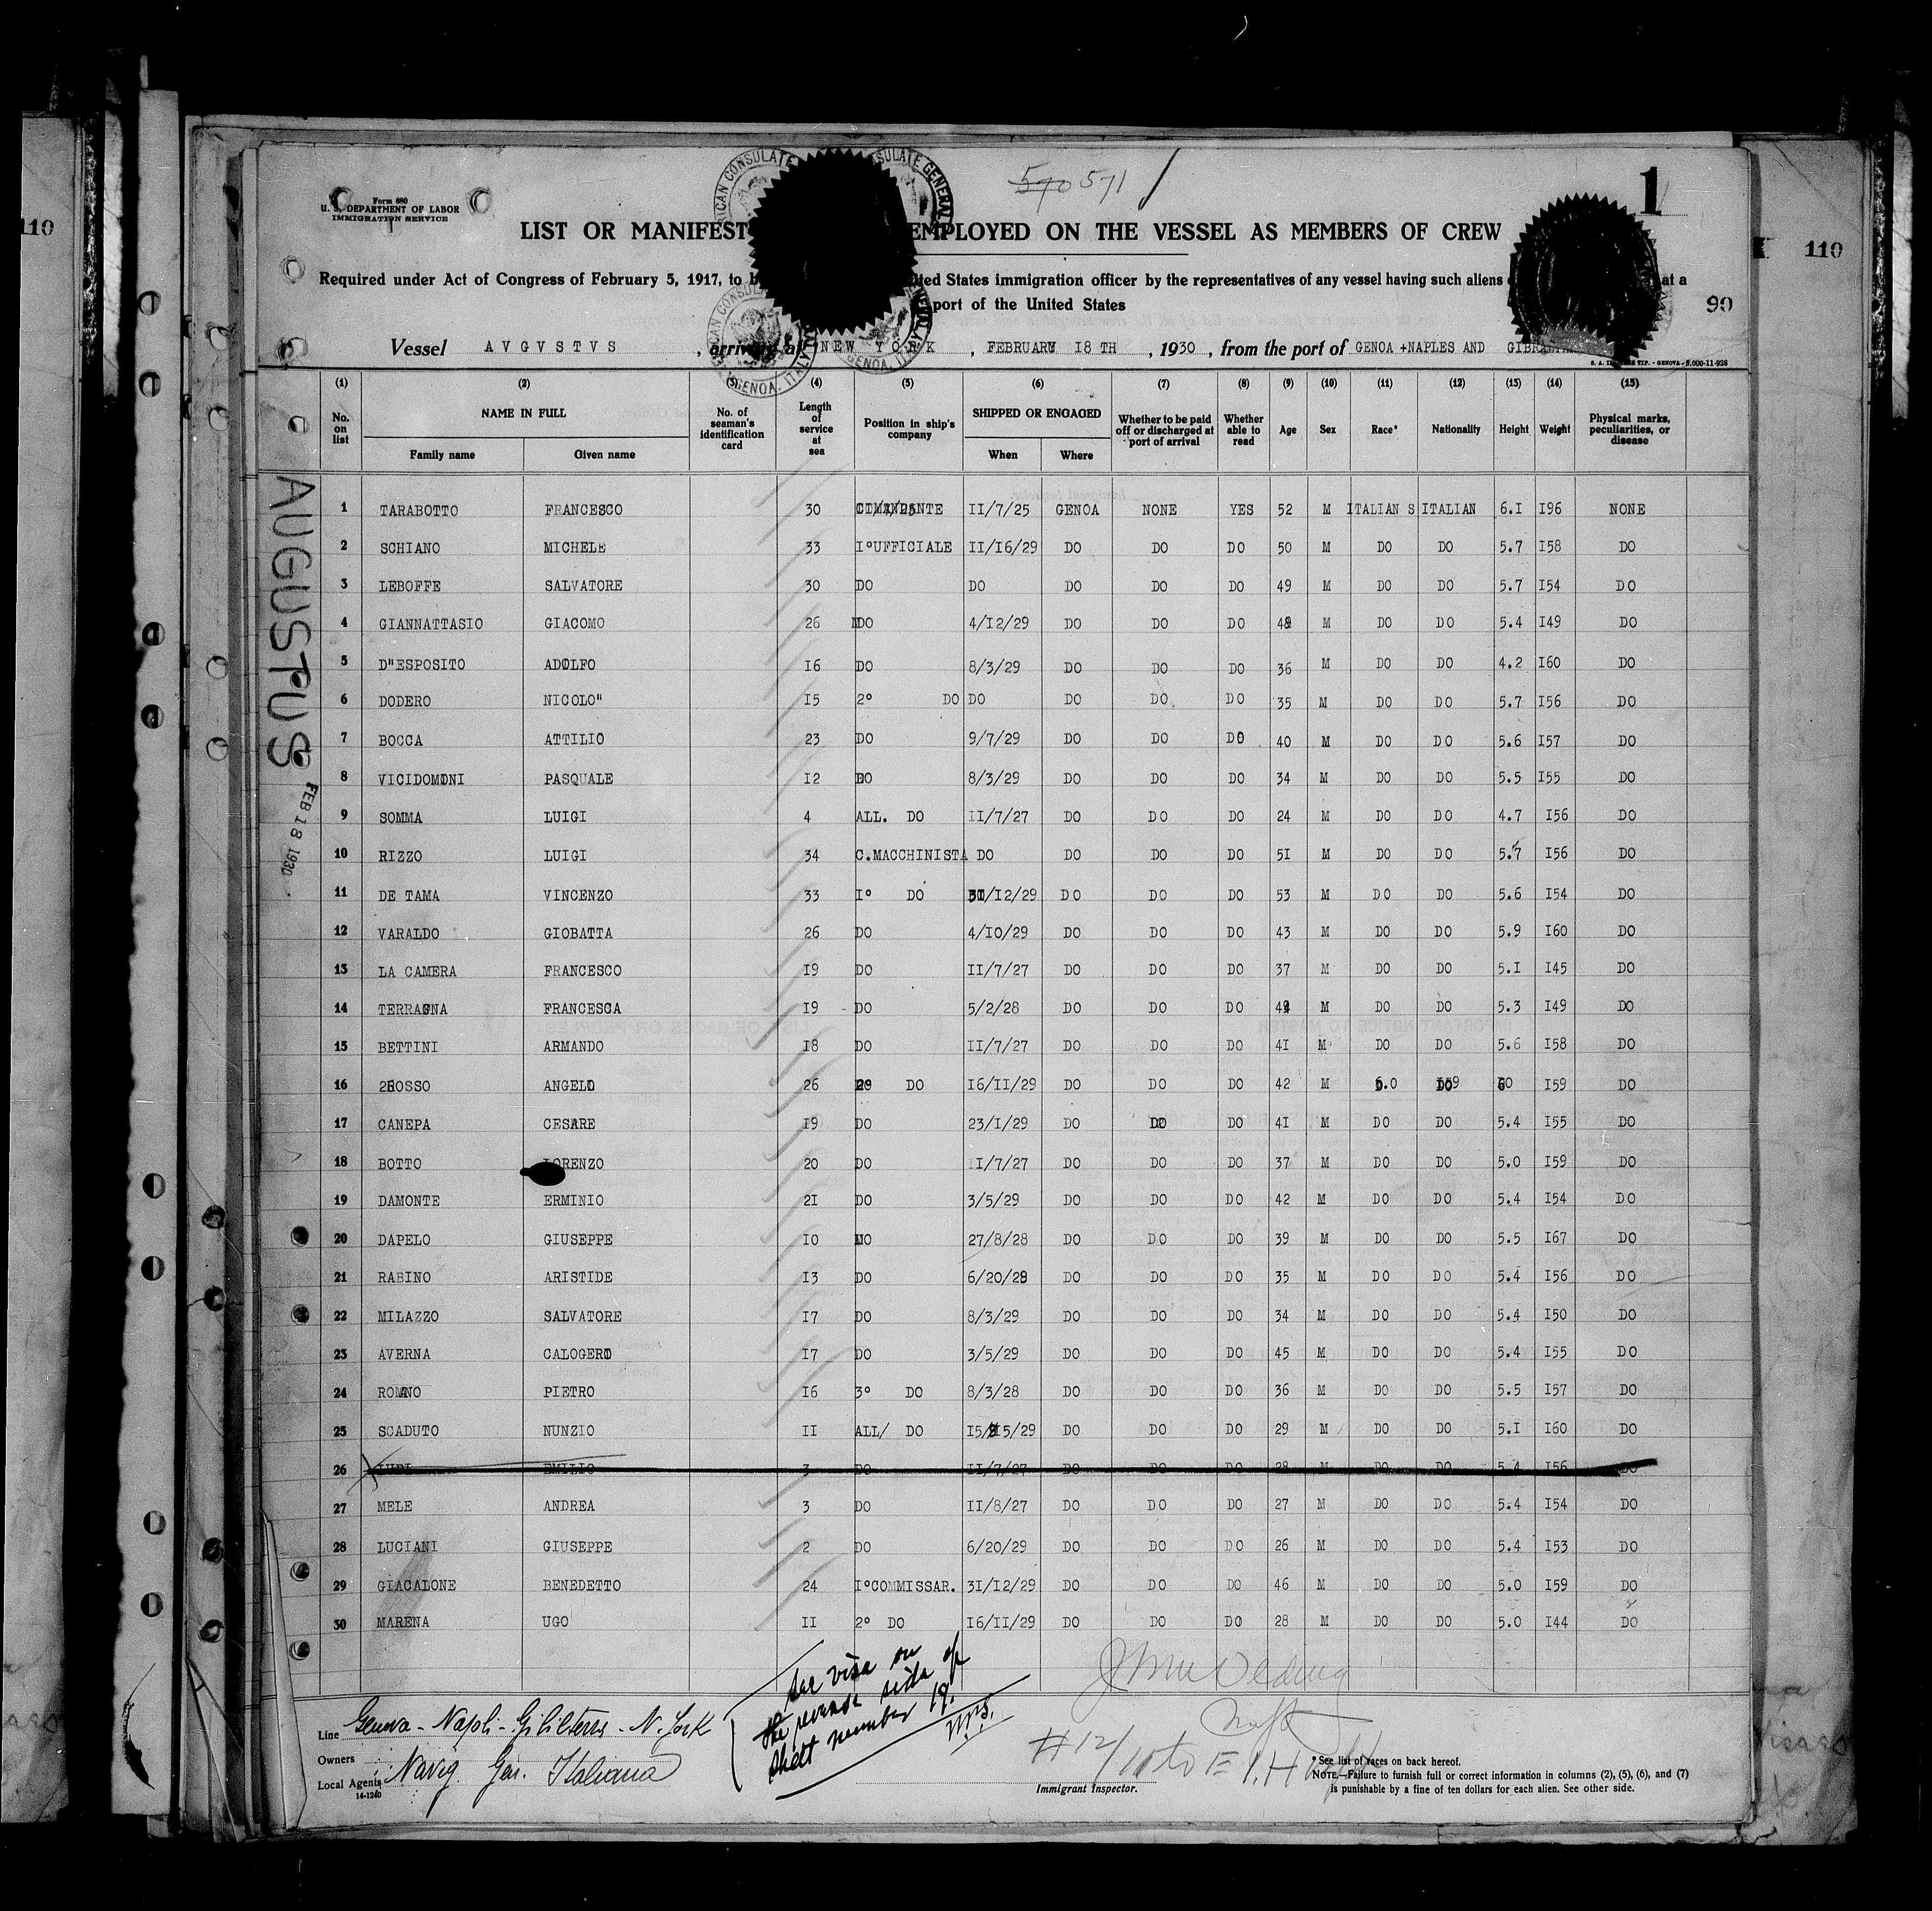 110
110
1
570 571
Form 680
U. S. DEPARTMENT OF LABOR
IMMIGRATION SERVICE
LIST OR MANIFEST EMPLOYED ON THE VESSEL AS MEMBERS OF CREW
Required under Act of Congress of February 5, 1917, to b ted States immigration officer by the representatives of any vessel having such aliens at a
port of the United States
90
Vessel AVGVSTVS , arriving at NEW YORK , FEBRUARY I8 TH , 1930 , from the port of GENOA +NAPLES AND
(1) (2) (3) (4) (5) (6) (7) (8) (9) (10) (11) (12) (13) (14) (15)
No. on list NAME IN FULL Family name Given name No. of seaman's identification card Length of service at sea Position in ship's company SHIPPED OR ENGAGED When Where Whether to be paid off or discharged at port of arrival Whether able to read Age Sex Race* Nationality Height Weight Physical marks, peculiarities, or disease
AUGUSTUS
FEB 18 1930
1 TARABOTTO FRANCESCO 30 II/7/25 GENOA NONE YES 52 M ITALIAN S ITALIAN 6.I I96 NONE
2 SCHIANO MICHELE 33 I°UFFICIALE II/I6/29 DO DO DO 50 M DO DO 5.7 I58 DO
3 LEBOFFE SALVATORE 30 DO DO DO DO DO 49 M DO DO 5.7 I54 DO
4 GIANNATTASIO GIACOMO 26 DO 4/I2/29 DO DO DO 48 M DO DO 5.4 I49 DO
5 D"ESPOSITO ADOLFO I6 DO 8/3/29 DO DO DO 36 M DO DO 4.2 I60 DO
6 DODERO NICOLO" I5 2° DO DO DO DO DO 35 M DO DO 5.7 I56 DO
7 BOCCA ATTILIO 23 DO 9/7/29 DO DO DO 40 M DO DO 5.6 I57 DO
8 VICIDOMINI PASQUALE I2 DO 8/3/29 DO DO DO 34 M DO DO 5.5 I55 DO
9 SOMMA LUIGI 4 ALL. DO II/7/27 DO DO DO 24 M DO DO 4.7 I56 DO
10 RIZZO LUIGI 34 C.MACCHINISTA DO DO DO DO 5I M DO DO 5.7 I56 DO
11 DE TAMA VINCENZO 33 I° DO 31/I2/29 DO DO DO 53 M DO DO 5.6 I54 DO
12 VARALDO GIOBATTA 26 DO 4/IO/29 DO DO DO 43 M DO DO 5.9 I60 DO
13 LA CAMERA FRANCESCO I9 DO II/7/27 DO DO DO 37 M DO DO 5.I I45 DO
14 TERRAGNA FRANCESCA I9 DO 5/2/28 DO DO DO M DO DO 5.3 I49 DO
15 BETTINI ARMANDO I8 DO II/7/27 DO DO DO 4I M DO DO 5.6 I58 DO
16 ROSSO ANGELO 26 2° DO I6/II/29 DO DO DO 42 M 6.0 I59 DO I59 DO
17 CANEPA CESARE I9 DO 23/I/29 DO DO DO 4I M DO DO 5.4 I55 DO
18 BOTTO LORENZO 20 DO II/7/27 DO DO DO 37 M DO DO 5.0 I59 DO
19 DAMONTE ERMINIO 2I DO 3/5/29 DO DO DO 42 M DO DO 5.4 I54 DO
20 DAPELO GIUSEPPE IO DO 27/8/28 DO DO DO 39 M DO DO 5.5 I67 DO
21 RABINO ARISTIDE I3 DO 6/20/28 DO DO DO 35 M DO DO 5.4 I56 DO
22 MILAZZO SALVATORE I7 DO 8/3/29 DO DO DO 34 M DO DO 5.4 I50 DO
23 AVERNA CALOGERO I7 DO 3/5/29 DO DO DO 45 M DO DO 5.4 I55 DO
24 ROMANO PIETRO I6 3° DO 8/3/28 DO DO DO 36 M DO DO 5.5 I57 DO
25 SCADUTO NUNZIO II ALL/ DO DO DO DO 29 M DO DO 5.I I60 DO
26 EMILIO 3 DO II/7/27 DO DO DO 28 M DO DO 5.4 I56 DO
27 MELE ANDREA 3 DO II/8/27 DO DO DO 27 M DO DO 5.4 I54 DO
28 LUCIANI GIUSEPPE 2 DO 6/20/29 DO DO DO 26 M DO DO 5.4 I53 DO
29 GIACALONE BENEDETTO 24 I°COMMISSAR. 3I/I2/29 DO DO DO 46 M DO DO 5.0 I59 DO
30 MARENA UGO II 2° DO I6/II/29 DO DO DO 28 M DO DO 5.0 I44 DO
see visa on
the reverse side of
sheet number 19.
Line Genova - Napoli - Gibilterra - N. York
Owners
Local Agents Navig. Gen. Italiana
16-1240
Immigrant Inspector.
* See list of races on back hereof.
NOTE.—Failure to furnish full or correct information in columns (2), (5), (6), and (7)
is punishable by a fine of ten dollars for each alien. See other side.